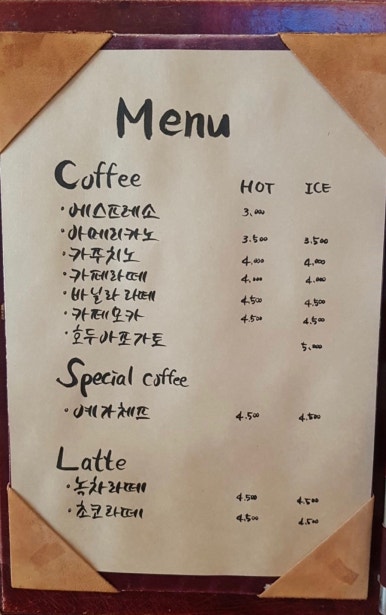 Menu
Coffee HOT ICE
· 에스프레소 3.000
· 아메리카노 3.500 3.500
· 카푸치노 4.000 4.000
· 카페라떼 4.000 4.000
· 바닐라 라떼 4.500 4.500
· 카페모카 4.500 4.500
· 호두아포가토 5.000
Special coffee
· 예가체프 4.500 4.500
Latte
· 녹차라떼 4.500 4.500
· 초코라떼 4.500 4.500